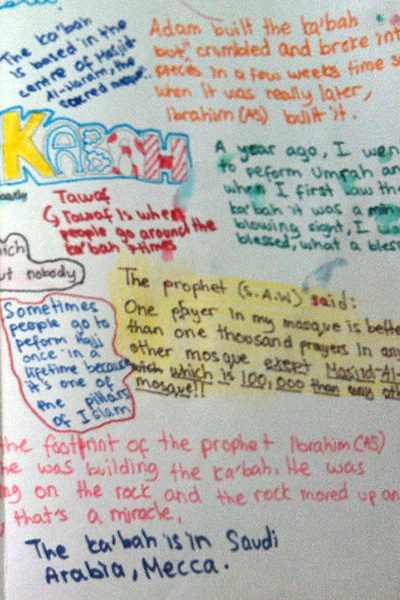 The ka'bah
is based in the
centre of Masjid
Al-Haram, the
sacred mosque..
Adam built the ka'bah
but crumbled and broke int
pieces in a few weeks time so
when it was really later,
Ibrahim (AS) built it.
KABAH
A year ago, I wen
to peform Umrah an
when I first saw the
ka'bah it was a min
blowing sight, I wa
blessed, what a bles
Tawaf
Tawaf is when
people go around the
ka'bah 7 times
ich
ut nobody
The prophet (S.A.W) said:
One prayer in my mosque is bette
than one thousand prayers in any
other mosque exept Masjid-Al-
which is 100,000 than any oth
mosque!!
Sometimes
people go to
peform Hajj
once in a
lifetime because
it's one of
the pillars
of Islam
the footprint of the prophet Ibrahim (AS)
he was building the ka'bah. He was
ng on the rock, and the rock moved up an
, that's a miracle,
The ka'bah is in Saudi
Arabia, Mecca.